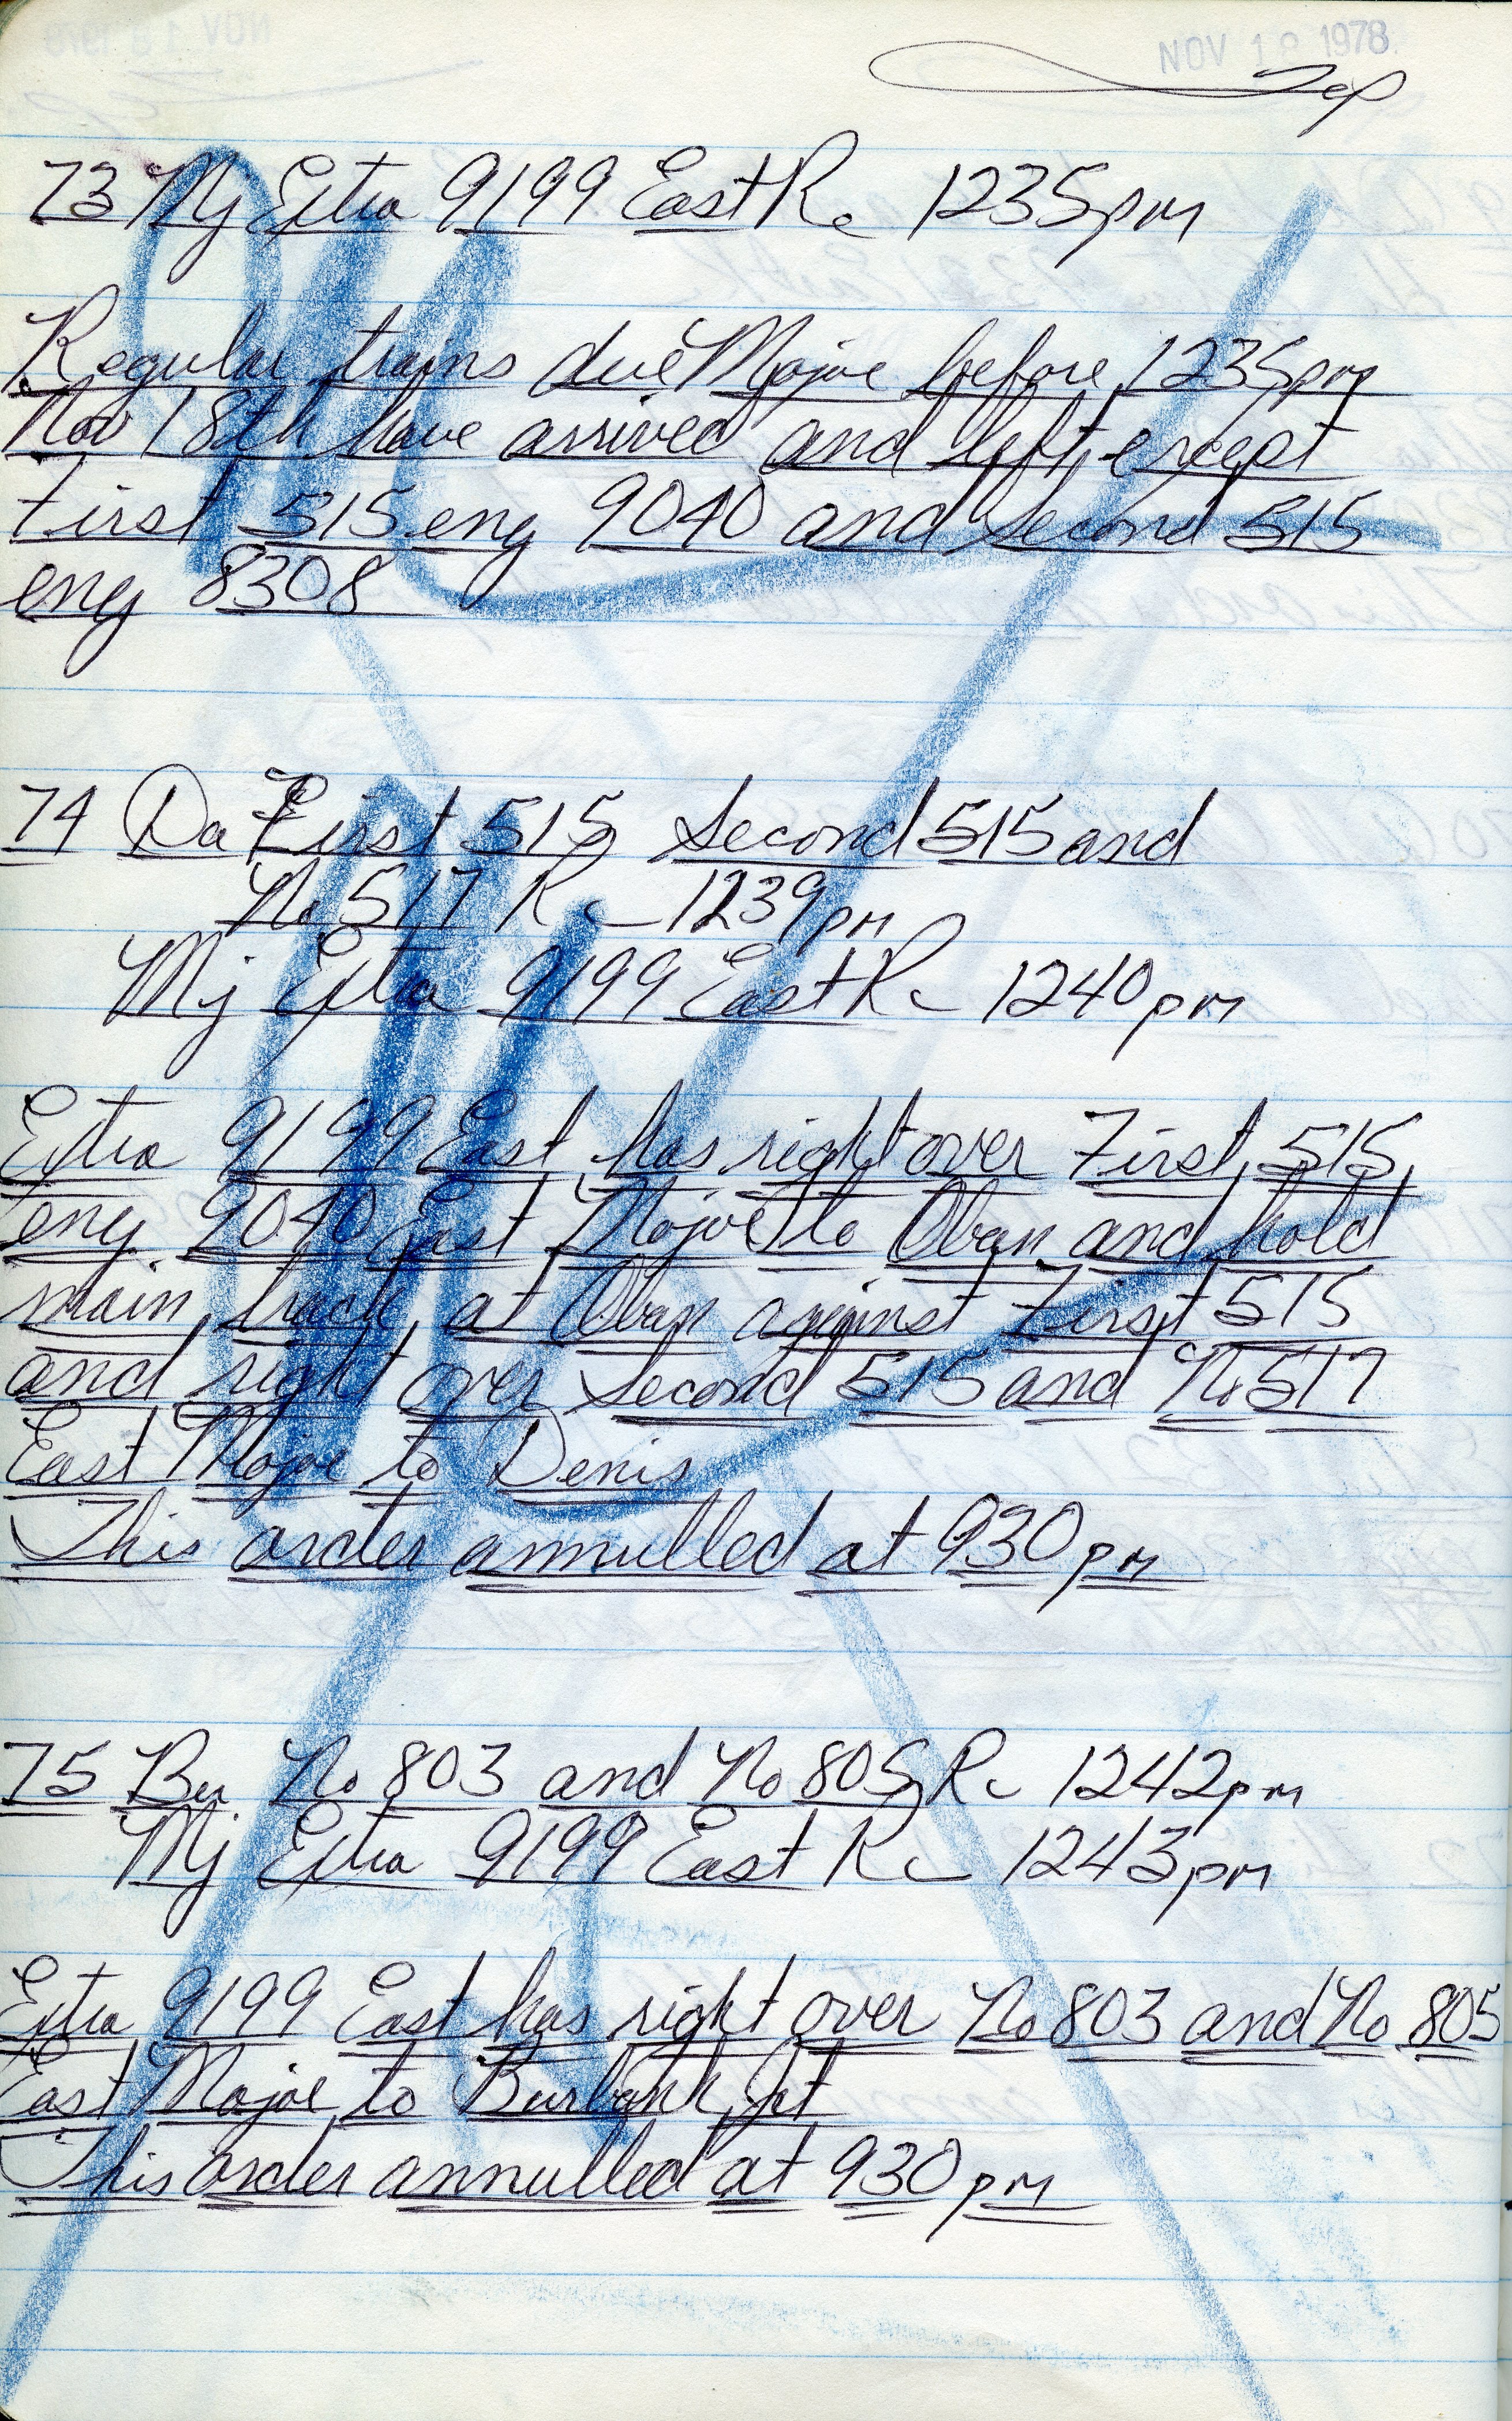 NOV 18 1978
73 Mj Extra 9199 East Rc 1235pm
Regular trains due Mojoe before 1235pm
Nov 18th have arrived and left except
First 515 eng 9040 and Second 515
eng 8308
74 Da First 515 Second 515 and
No 517 Rc 1239pm
Mj Extra 9199 East Rc 1240pm
Extra 9199 East has right over First 515
eng 9040 East Mojoe to Oban and hold
main track at Oban against First 515
and right over Second 515 and No 517
East Mojoe to Denis
This order annulled at 930pm
75 Bu No 803 and No 805 Rc 1242pm
Mj Extra 9199 East Rc 1243pm
Extra 9199 East has right over No 803 and No 805
East Mojoe to Burbank Jct
This order annulled at 930pm